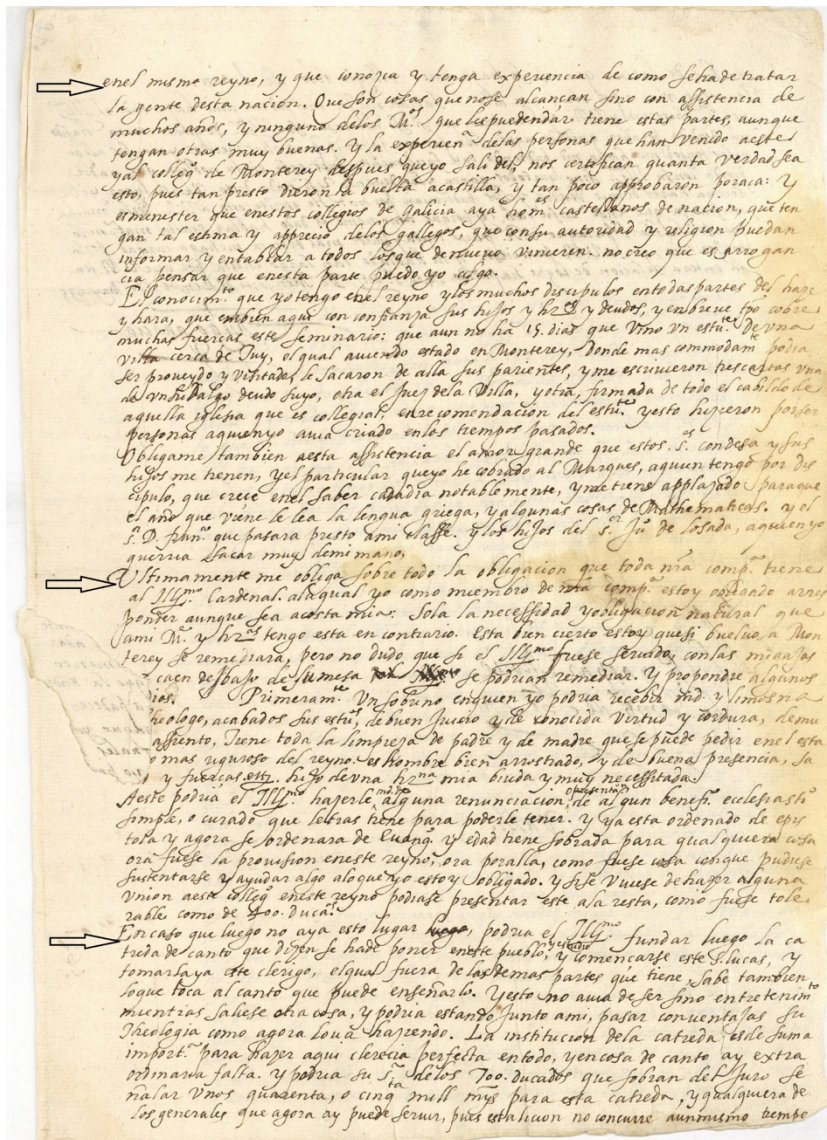 enel mismo reyno, y que conozca y tenga experiencia de como se ha de tratar
la gente desta nacion. Que son cosas que nose alcançan sino con assistencia de
muchos años, y ninguno delos M.os que les puedendar tiene estas partes, aunque
tengan otras muy buenas. Y la experien.a delas personas que han venido aeste
yal colleg.o de Monterey despues queyo sali del, nos certifican quanta verdad sea
esto, pues tan presto dieron la buelta acastilla, y tan poco approbaron poraca: Y
esmenester que enestos collegios de Galicia aya hom.es castellanos de nacion, que ten
gan tal estima y apprecio delos gallegos, que consu autoridad y religion puedan
informar y entablar a todos losque denuevo vinieren. no creo que es arrogan
cia pensar que enesta parte puedo yo algo.
El conocim.to que yo tengo enel reyno y los muchos discipulos entodas partes del haze
y hara, que embien aqui con confiança sus hijos y hr.os y deudos, y enbreve tpo cobre
muchas fuerças este seminario: que aun no ha 15. dias que vino vn estu.te De vna
villa cerca de Tuy, el qual aviendo estado en Monterey, donde mas commodam.te podia
ser proveydo y visitado, le sacaron de alla sus parientes, y me escrivieron tres cartas vna
de vn hidalgo deudo suyo, otra el juez dela Villa, y otra firmada de todo el cabildo de
aquella iglesia que es collegial, en recomendacion del estu.te y esto hizieron por ser
personas aquienyo avia criado enlos tiempos pasados.
Obligame tambien aesta assistencia el amor grande que estos s.es condesa y sus
hijos me tienen, y el particular queyo he cobrado al Marques, aquien tengo por dis
cipulo, que crece enel saber cadadia notablemente, y me tiene applazado paraque
el año que viene le lea la lengua griega, y algunas cosas de Mathematicas. y el
s.r D. fran.co que pasara presto ami classe. y los hijos del s.or Ju.o de losada, aquien yo
querria sacar muy demi mano,
Ultimamente me obliga sobre todo la obligacion que toda nra comp.a tiene
al Ill.mo Cardenal. ala qual yo como miembro de nra comp.a estoy obligado arres
ponder aunque sea acosta mia: Sola la necessidad y obligacion natural que
ami M.e y hr.nas tengo esta en contrario. Esta bien cierto estoy que si buelvo a Mon
terey se remediara, pero no dudo que si el Ill.mo fuese servido, con las migajas
caen debaxo de su mesa se podrian remediar. Y propondre algunos
dios. Primeram.te Vn sobrino enquien yo podria recebir md. y limosna
theologo, acabados sus estu.os, de buen juicio y de conocida virtud y cordura, demu
assiento, tiene toda la limpieza de padre y de madre que se puede pedir enel esta
o mas riguroso del reyno. es hombre bien arrostrado, y de buena presencia, sa
d y fuerças. hijo de vna hr.na mia biuda y muy necessitada.
Aeste podria el Ill.mo hazerle md. de alguna renunciacion, o presentacion de algun benefi.o ecclesiasti
simple, o curado que letras tiene para poderle tener. y ya esta ordenado de epis
tola y agora se ordenara de Evang.o y edad tiene sobrada para qualquiera cosa
ora fuese la provision eneste reyno, ora poralla, como fuese cosa conque pudiese
sustentarse y ayudar algo aloque yo estoy obligado. y si se vuiese de hazer alguna
Vnion aeste colleg.o eneste reyno podriase presentar este ala resta, como fuese tole
rable como de 400. duca.s
Encaso que luego no aya esto lugar, podria el Ill.mo fundar luego la ca
treda de canto que dizen se hade poner eneste pueblo, y estudio y comencarse este S. lucas, y
tomarla ya este clerigo, elqual fuera de lasdemas partes que tiene, sabe tambien
loque toca al canto que puede enseñarlo. Y esto no avia de ser sino entretenim.to
mientras saliese otra cosa, y podria estando junto ami, pasar con ventajas su
Theologia como agora lo va haziendo. La institucion dela catreda es de suma
import.a para hazer aqui clerecia perfecta entodo, y encosa de canto ay extra
ordinaria falta. y podria su s.ria delos 700. ducados que sobran del juro se
ñalar vnos quarenta, o cinq.ta mill mrs para esta catreda, y qualquiera de
los generales que agora ay puede servir, pues esta licion no concurre aunmismo tiempo